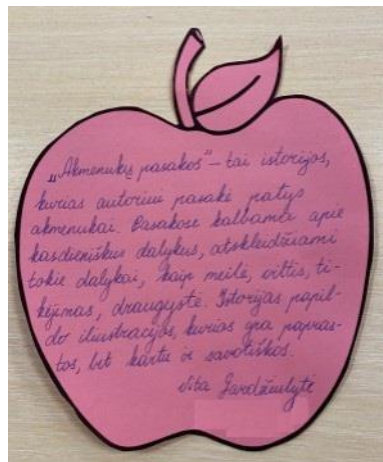 „Akmenukų pasakos" – tai istorijos,
kurias autoriui pasakė patys
akmenukai. Pasakose kalbama apie
kasdieniškus dalykus, atskleidžiami
tokie dalykai, kaip meilė, viltis, ti-
kėjimas, draugystė. Istorijas papil-
do iliustracijos, kurios yra papras-
tos, bet kartu ir savotiškos.
Vita